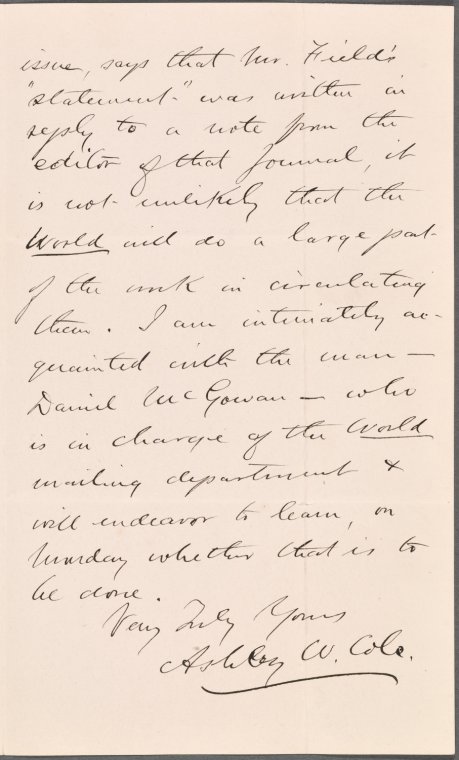 issue, says that Mr. Field's
"statement" was written in
reply to a note from the
editor of that Journal, it
is not unlikely that the
World will do a large part
of the work in circulating
them. I am intimately ac-
quainted with the man —
Daniel McGowan — who
is in charge of the World
mailing department &
will endeavor to learn, on
Monday whether that is to
be done.
Very Truly Yours
Ashley W. Cole.